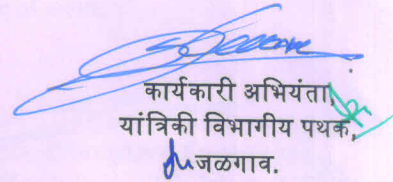 कार्यकारी अभियंता,
यांत्रिकी विभागीय पथक,
जळगाव.